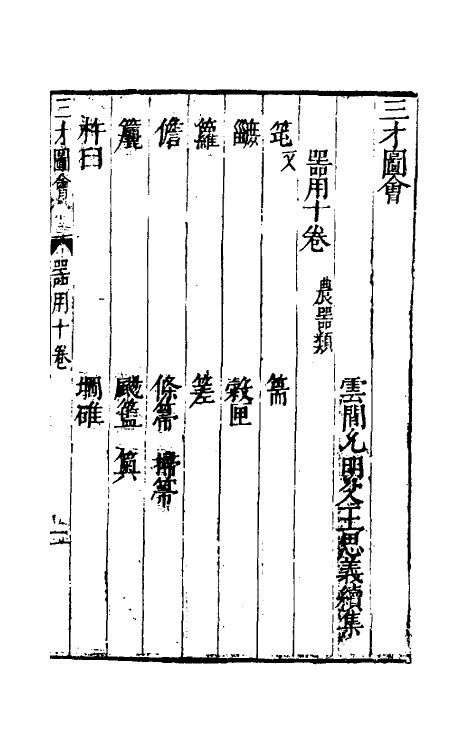 三才圖會
雲間允明父王思義續集
器用十卷 農器類
篅
穀匣
籮
儋 條箒 掃箒
籭 颺籃 箕
杵臼 堈碓
三才圖會 器用十卷